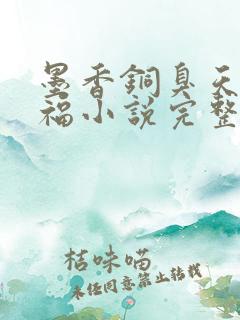 墨香銅臭天
福小說完整
桔味喵
未经同意禁止转载